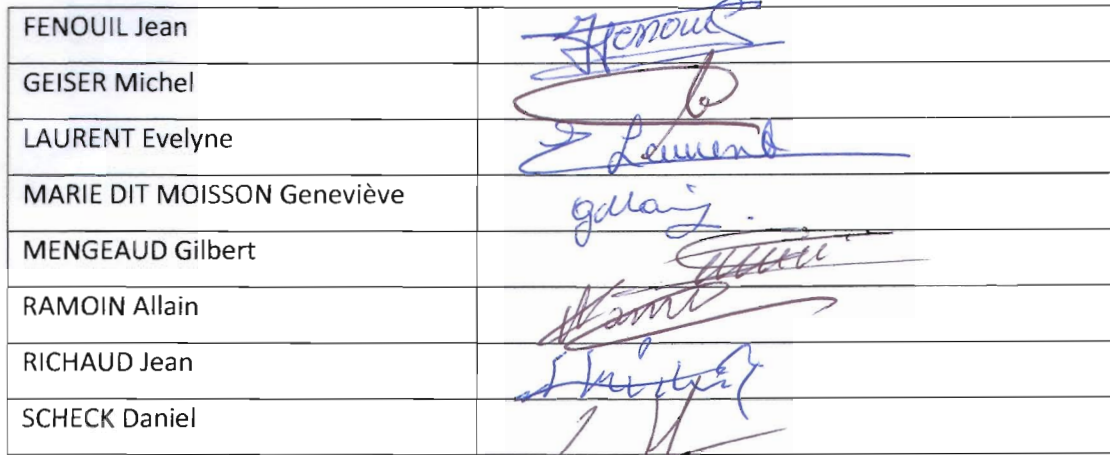 FENOUIL Jean Fenouil
GEISER Michel
LAURENT Evelyne E Laurent
MARIE DIT MOISSON Geneviève
MENGEAUD Gilbert
RAMOIN Allain
RICHAUD Jean
SCHECK Daniel